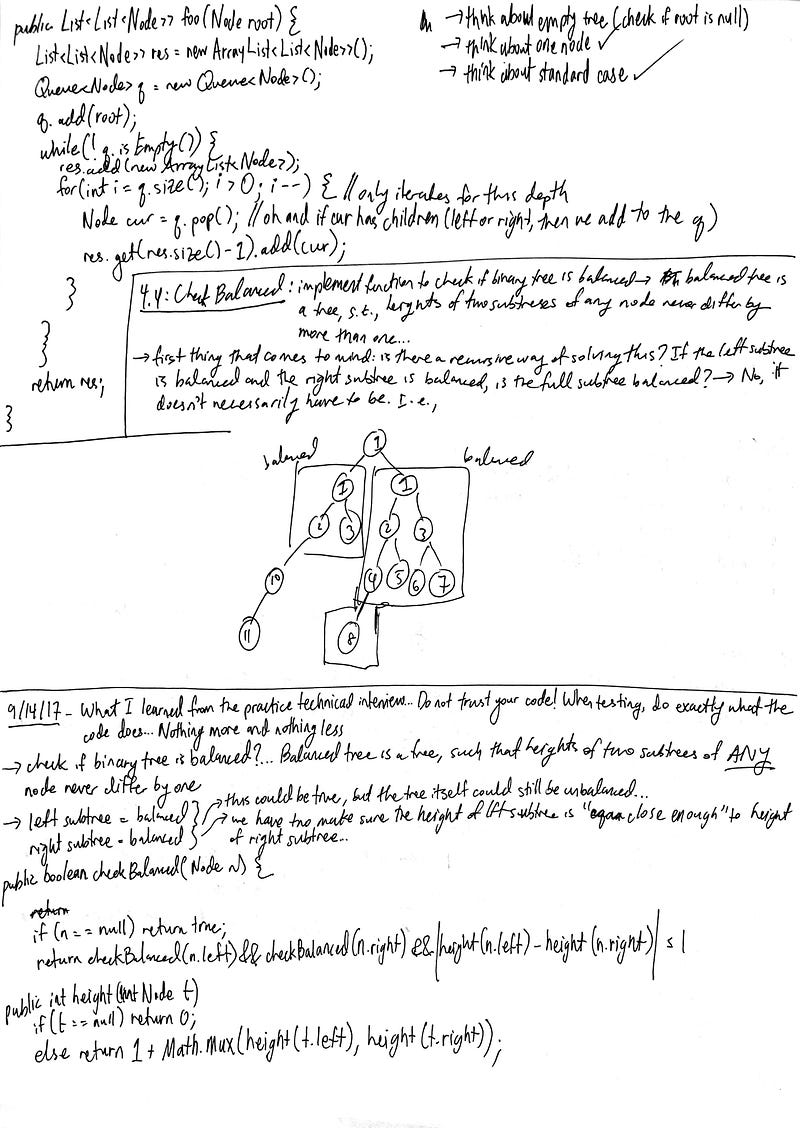 public List<List<Node>> foo(Node root) {
List<List<Node>> res = new ArrayList<List<Node>>();
Queue<Node> q = new Queue<Node>();
q.add(root);
while(!q.isEmpty()) {
res.add(new ArrayList<Node>);
for(int i = q.size(); i > 0; i--) { // only iterates for this depth
Node cur = q.pop(); // oh and if cur has children (left or right, then we add to the q)
res.get(res.size()-1).add(cur);
}
}
return res;
}
→ think about empty tree (check if root is null)
→ think about one node ✓
→ think about standard case ✓
4.4: Check Balanced: implement function to check if binary tree is balanced → balanced tree is
a tree, s.t., heights of two subtrees of any node never differ by
more than one...
→ first thing that comes to mind: is there a recursive way of solving this? If the left subtree
is balanced and the right subtree is balanced, is the full subtree balanced? → No, it
doesn't necessarily have to be. I.e.,
balanced
1
balanced
1
1
2
3
2
3
10
4
5
6
7
11
8
9/14/17 - What I learned from the practice technical interview... Do not trust your code! When testing, do exactly what the
code does... Nothing more and nothing less
→ check if binary tree is balanced?... Balanced tree is a tree, such that heights of two subtrees of ANY
node never differ by one
→ left subtree = balanced } → this could be true, but the tree itself could still be unbalanced...
right subtree = balanced } → we have too make sure the height of lft subtree is "close enough" to height
of right subtree...
public boolean checkBalanced(Node n) {
return
if (n == null) return true;
return checkBalanced(n.left) && checkBalanced(n.right) && |height(n.left) - height(n.right)| ≤ 1
public int height(Node t)
if(t == null) return 0;
else return 1 + Math.max(height(t.left), height(t.right));